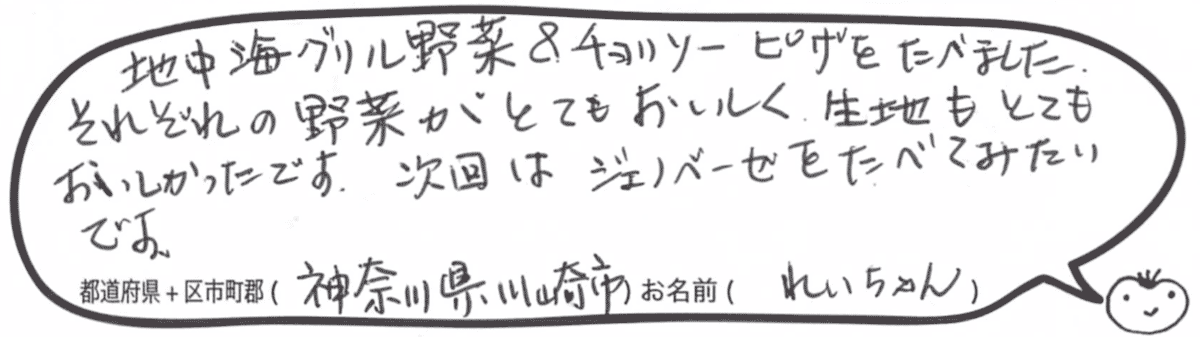 地中海グリル野菜&チョリソーピザをたべました。
それぞれの野菜がとてもおいしく、生地もとても
おいしかったです。次回はジェノベーゼをたべてみたい
です。
都道府県+区市町郡(神奈川県川崎市)お名前(れいちゃん)